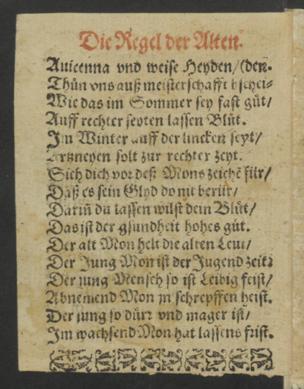 Die Regel der Alten.
Auicenna vnd weise Heyden/(den.
Thůn vns auß meisterschafft bschei-
Wie das im Sommer sey fast gůt/
Auff rechter seyten lassen Blůt.
Im Winter auff der lincken seyt/
Artzneyen solt zur rechter zeyt.
Sich dich vor deß Mons zeichē für/
Daß es sein Glyd do nit berür/
Dariñ du lassen wilst dein Blůt/
Das ist der gsundheit hohes gůt.
Der alt Mon helt die alten Leut/
Der Jung Mon ist der Jugend zeit:
Der jung Mensch so ist Leibig feist/
Abnemend Mon jn schrepffen heist.
Der jung so dürr vnd mager ist/
Im wachsend Mon hat lassens frist.